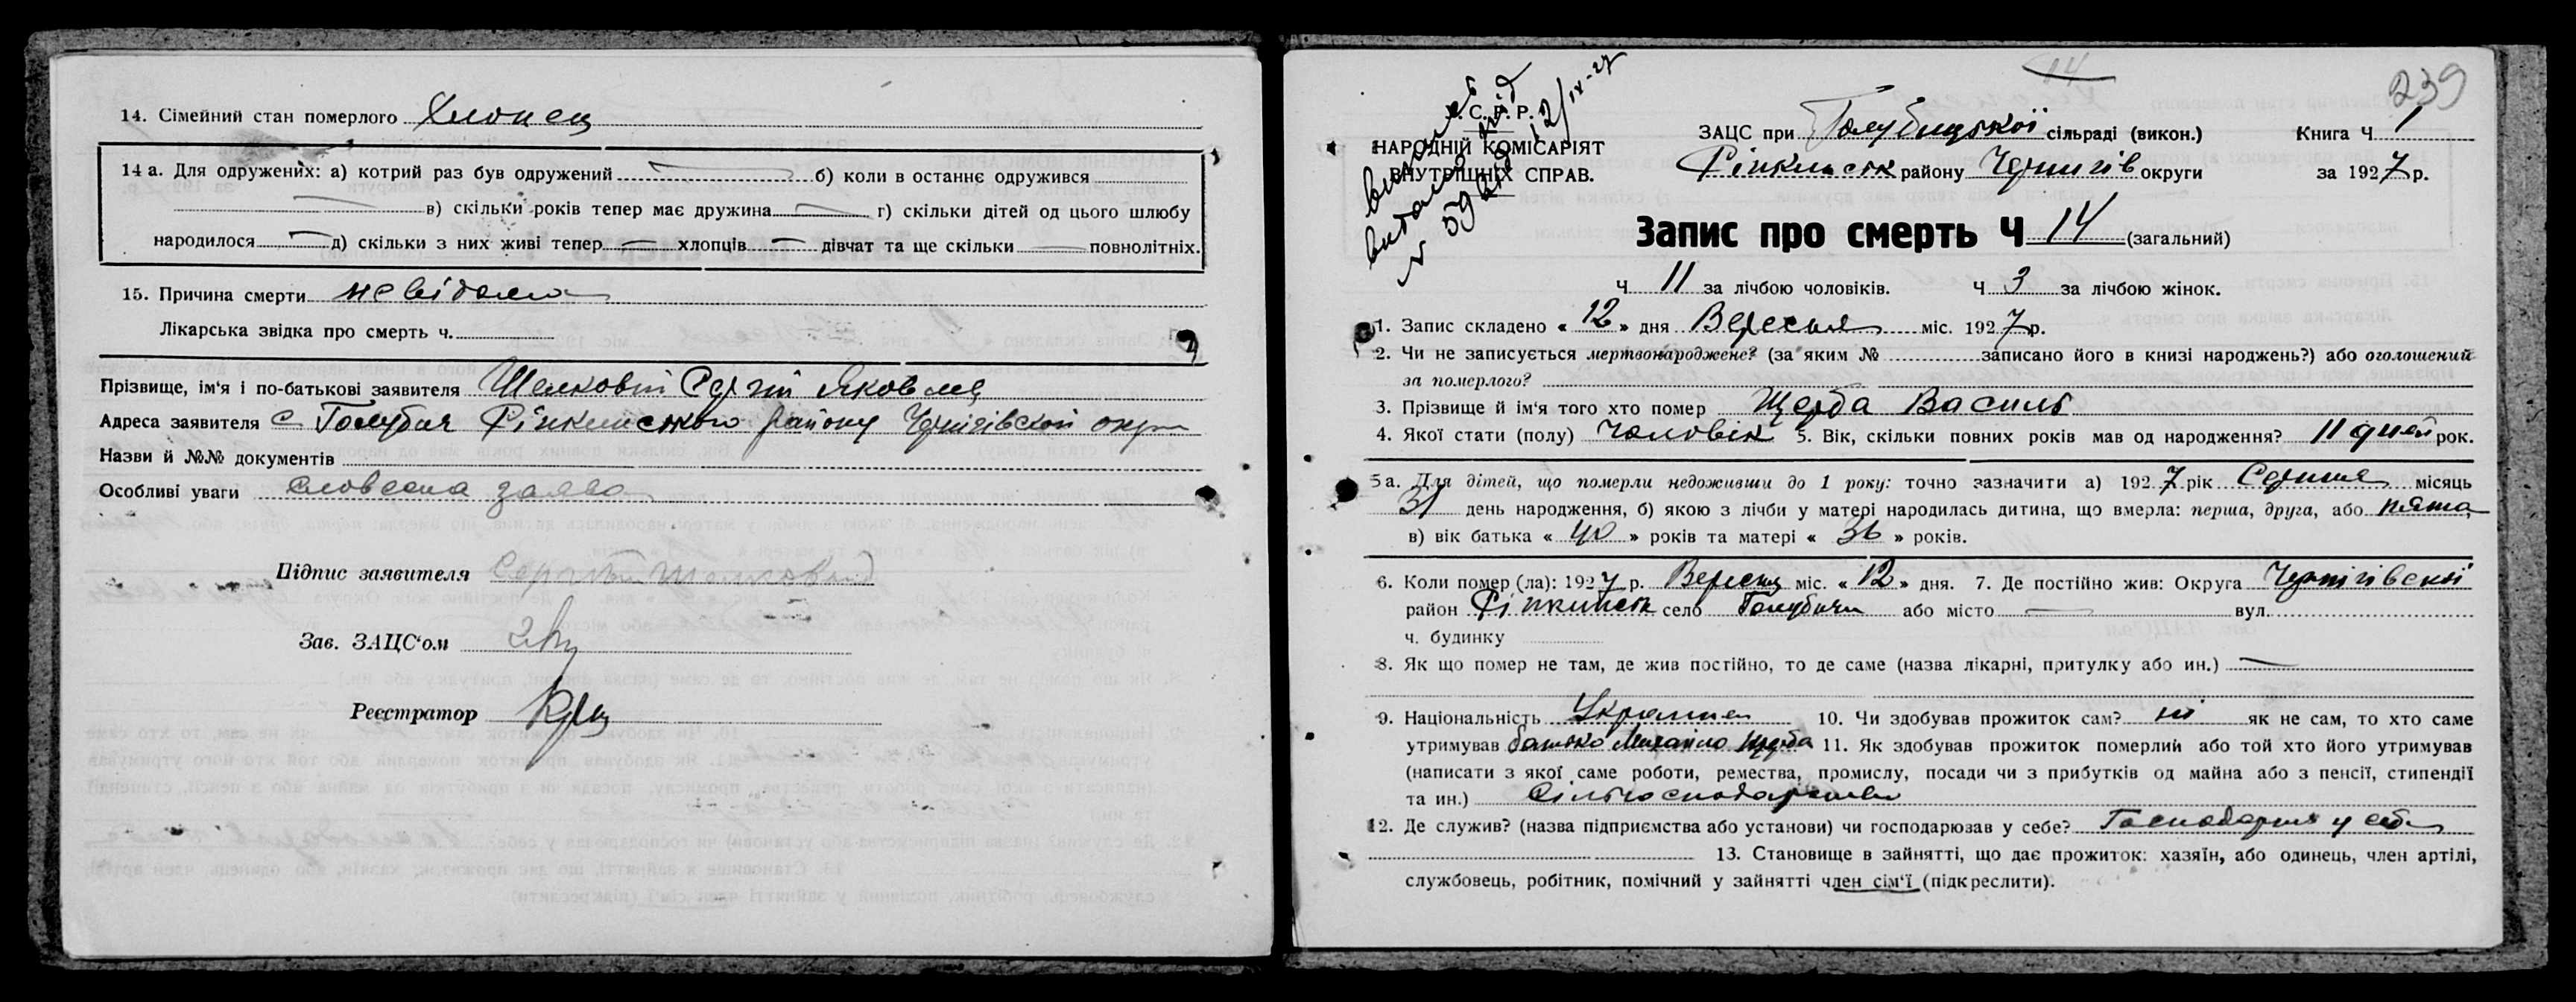 14. Сімейний стан померлого Хлопец
14 а. Для одружених: а) котрий раз був одружений б) коли в останнє одружився
в) скільки років тепер має дружина г) скільки дітей од цього шлюбу
народилося д) скільки з них живі тепер хлопців дівчат та ще скільки повнолітніх.
15. Причина смерти невідома
Лікарська звідка про смерть ч.
Прізвище, ім'я і по-батькові заявителя Сергій
Адреса заявителя с Голубичі Ріпкинського району Чернігівской округи
Назви й №№ документів
Особливі уваги словесна заява
Підпис заявителя
Зав. ЗАЦС'ом
Реєстратор
14
239
С. Р. Р.
НАРОДНІЙ КОМІСАРІЯТ
ВНУТРІШНІХ СПРАВ.
12/IX-27
ЗАЦС при Голубицької сільраді (викон.) Книга Ч 1
Ріпкинськ району Чернигів округи за 1927 р.
Запис про смерть Ч 14 (загальний)
Ч 11 за лічбою чоловіків. Ч 3 за лічбою жінок.
1. Запис складено « 12 » дня Вересня міс. 1927 р.
2. Чи не записується мертвонароджене? (за яким № записано його в книзі народжень?) або оголошений
за померлого?
3. Прізвище й ім'я того хто помер Щерба Василь
4. Якої стати (полу) Чоловік 5. Вік, скільки повних років мав од народження? 11 дней рок.
5 а. Для дітей, що померли недоживши до 1 року: точно зазначити а) 1927 рік Серпня місяць
31 день народження, б) якою з лічби у матері народилась дитина, що вмерла: перша, друга, або пята,
в) вік батька « 40 » років та матері « 36 » років.
6. Коли помер (ла): 1927 р. Вересня міс. « 12 » дня. 7. Де постійно жив: Округа Чернігівской
район Ріпкинськ село Голубичи або місто вул.
ч. будинку
8. Як що помер не там, де жив постійно, то де саме (назва лікарні, притулку або ин.)
9. Національність 10. Чи здобував прожиток сам? ні як не сам, то хто саме
утримував батько Михайло Щерба 11. Як здобував прожиток померлий або той хто його утримував
(написати з якої саме роботи, ремества, промислу, посади чи з прибутків од майна або з пенсії, стипендії
та ин.)
12. Де служив? (назва підприємства або установи) чи господарював у себе? у себе
13. Становище в зайнятті, що дає прожиток: хазяїн, або одинець, член артілі,
службовець, робітник, помічний у зайнятті член сім'ї (підкреслити).